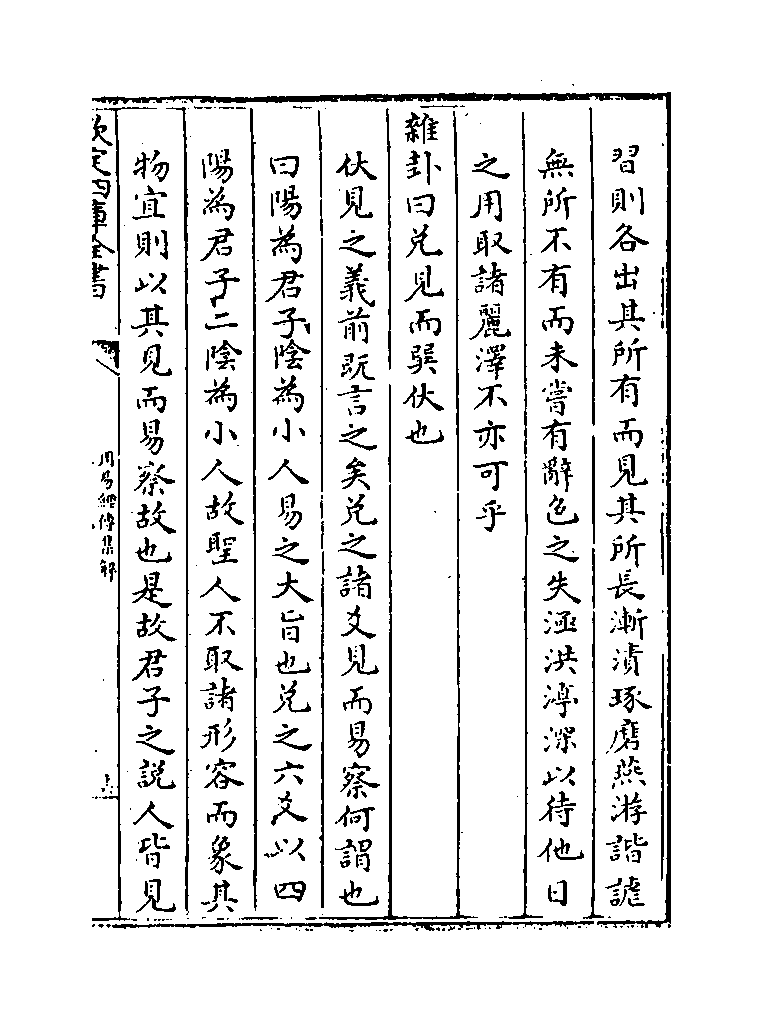 習則各出其所有而見其所長漸漬琢磨燕游諧謔
無所不有而未嘗有辭色之失涵洪渟深以待他日
之用取諸麗澤不亦可乎
雜卦曰兑見而巽伏也
伏見之義前既言之矣兑之諸爻見而易察何謂也
曰陽為君子陰為小人易之大旨也兑之六爻以四
陽為君子二陰為小人故聖人不取諸形容而象其
物宜則以其見而易察故也是故君子之説人皆見
欽定四庫全書
周易經傳集解